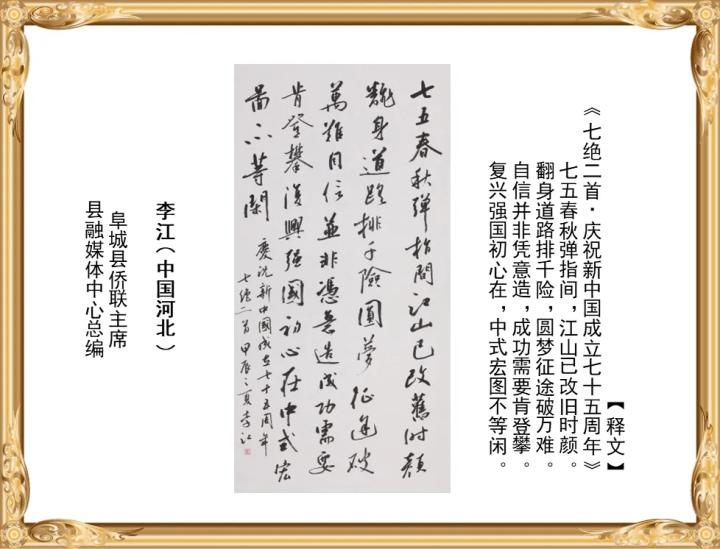 【释文】
《七绝二首·庆祝新中国成立七十五周年》
七五春秋弹指间，江山已改旧时颜。
翻身道路排千险，圆梦征途破万难。
自信并非凭意造，成功需要肯登攀。
复兴强国初心在，中式宏图不等闲。
七五春秋彈指間江山已改舊時顏
翻身道路排千險圓夢征途破
萬難自信並非憑意造成功需要
肯登攀復興強國初心在中式宏
圖不等閑
慶祝新中國成立七十五周年
七絕二首甲辰之夏李江
李江（中国河北）
阜城县侨联主席
县融媒体中心总编